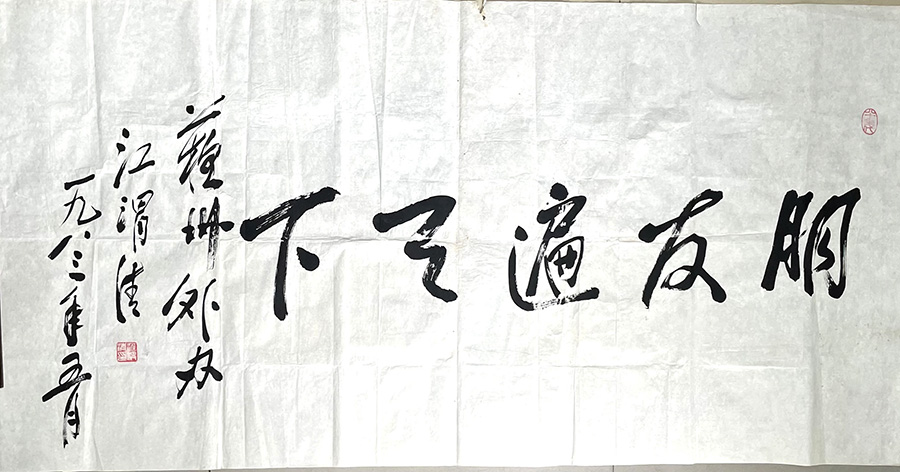 朋友遍天下
蘇州外办
江渭清
一九八三年五月